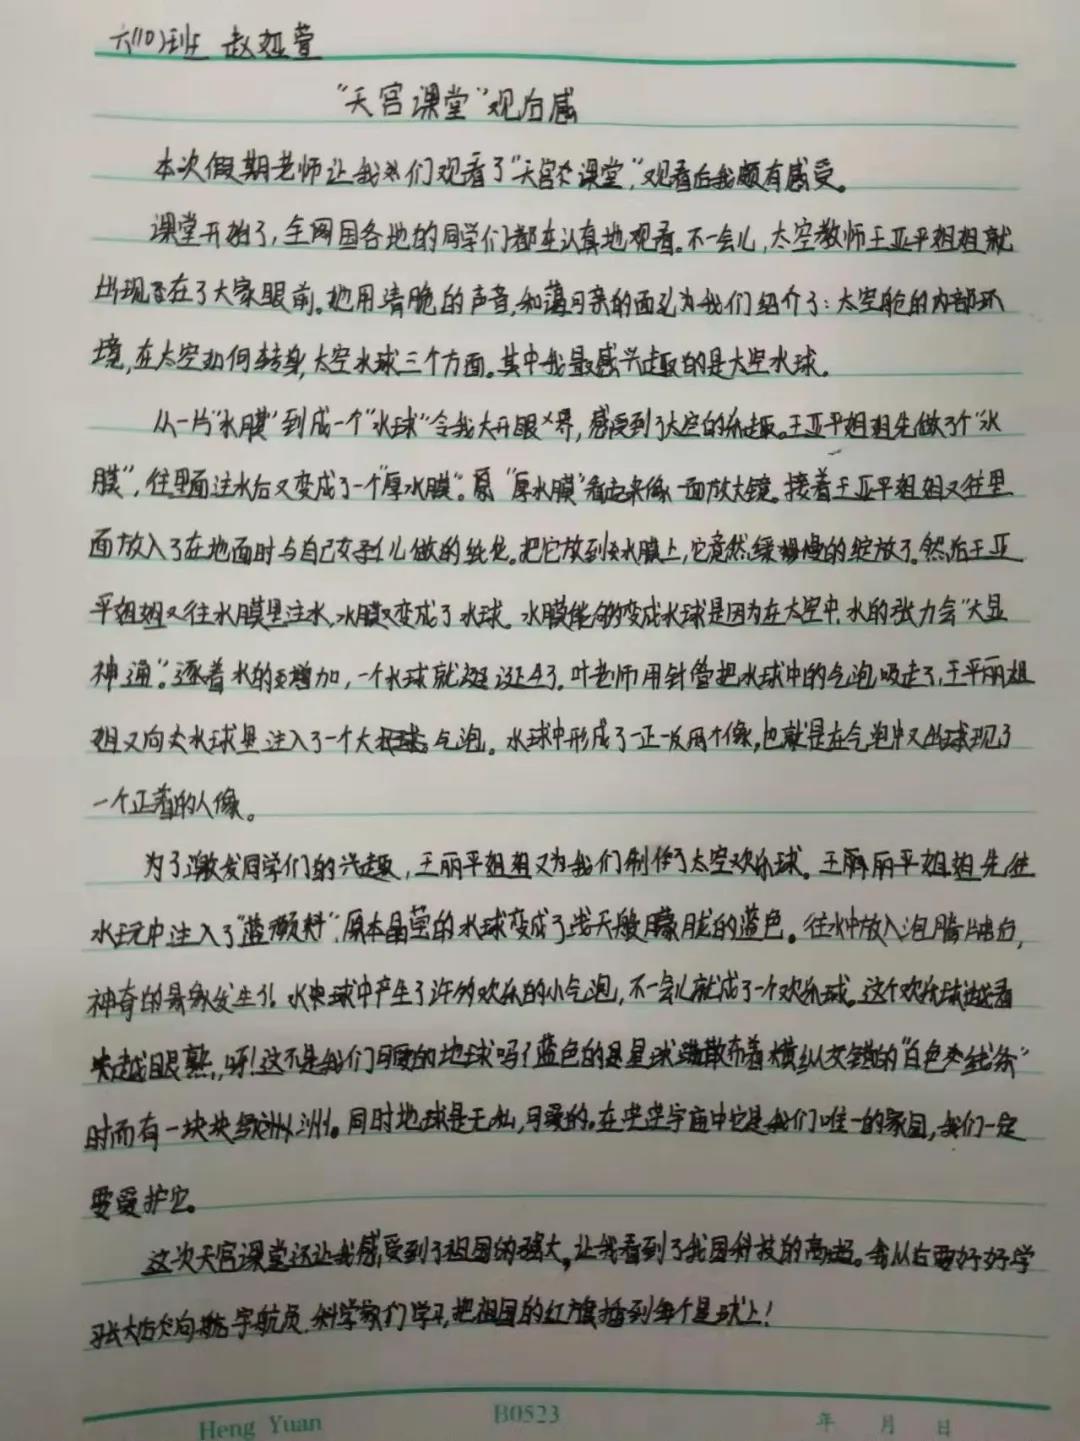 六(10)班 赵娅萱
“天宫课堂”观后感
本次假期老师让我们观看了“天宫课堂”,观看后我颇有感受。
课堂开始了,全国各地的同学们都在认真地观看。不一会儿,太空教师王亚平姐姐就
出现在了大家眼前。她用清脆的声音,和蔼可亲的面孔为我们绍介了:太空舱的内部环
境,在太空如何转身,太空水球三个方面。其中我最感兴趣的是太空水球。
从一片“水膜”到成一个“水球”令我大开眼界,感受到了太空的乐趣。王亚平姐姐先做了个“水
膜”,往里面注水后又变成了一个“厚水膜”。“厚水膜”看起来像一面放大镜。接着王亚平姐姐又往里
面放入了在地面时与自己女儿做的纸花。把它放到水膜上,它竟然缓慢的绽放了。然后王亚
平姐姐又往水膜里注水,水膜又变成了水球。水膜能够变成水球是因为在太空中,水的张力会“大显
神通”。逐着水的增加,一个水球就诞生了。叶老师用针管把水球中的气泡吸走了,王平丽姐
姐又向水球里注入了一个大气泡。水球中形成了一正一反两个像,也就是在气泡中又出现了
一个正着的人像。
为了激发同学们的兴趣,王丽平姐姐又为我们制作了太空欢乐球。王丽平姐姐先往
水球中注入了“蓝颜料”,原本晶莹的水球变成了浅天般朦胧的蓝色。往水中放入泡腾片后,
神奇的景象发生了!水球中产生了许多欢乐的小气泡,不一会儿就成了一个欢乐球。这个欢乐球越看
越眼熟,呀!这不是我们可爱的地球吗?蓝色的星球散布着横纵交错的“白色线条”
时而有一块块绿洲。同时地球是无私,可爱的。在茫茫宇宙中它是我们唯一的家园,我们一定
要爱护它。
这次天宫课堂还让我感受到了祖国的强大,让我看到了我国科技的高超。我从后要好好学
张大后向航宇航员,科学家们学习,把祖国的红旗插到每个星球上!
Heng Yuan
B0523
年 月 日